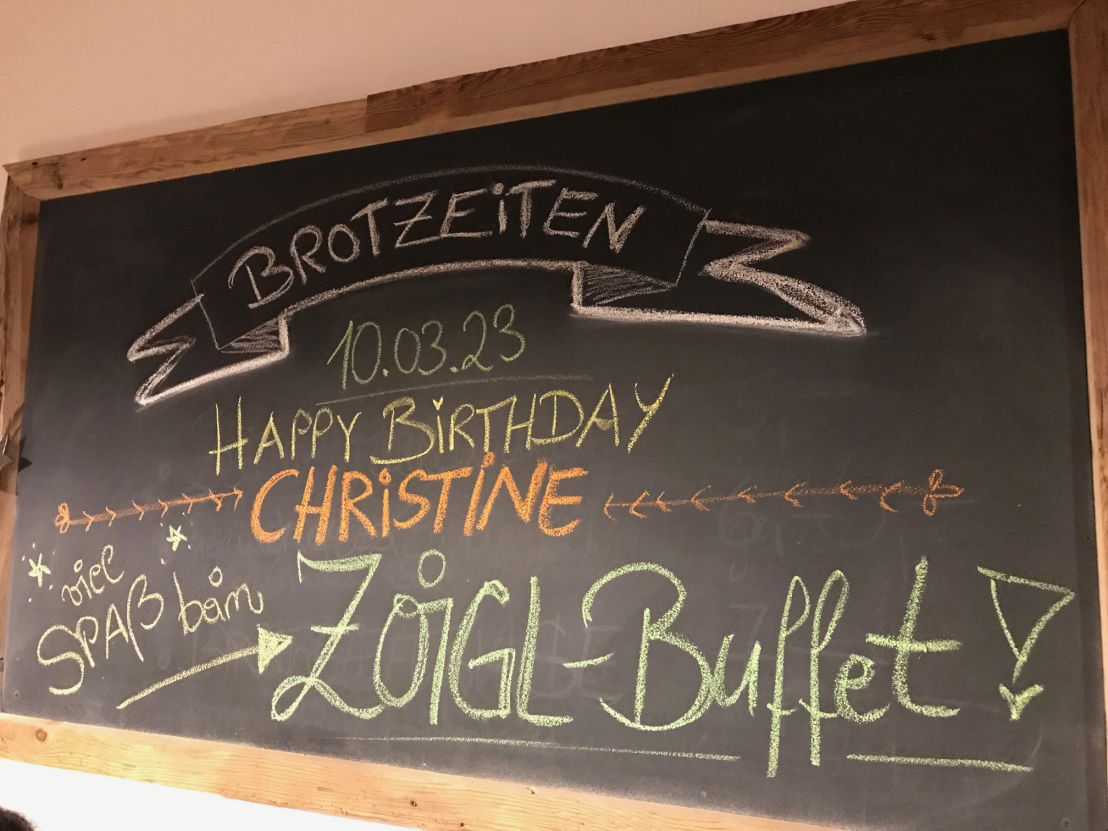 BROTZEITEN
10.03.23
HAPPY BIRTHDAY
CHRISTINE
viel
SPAß beim
ZOIGL-Buffet!